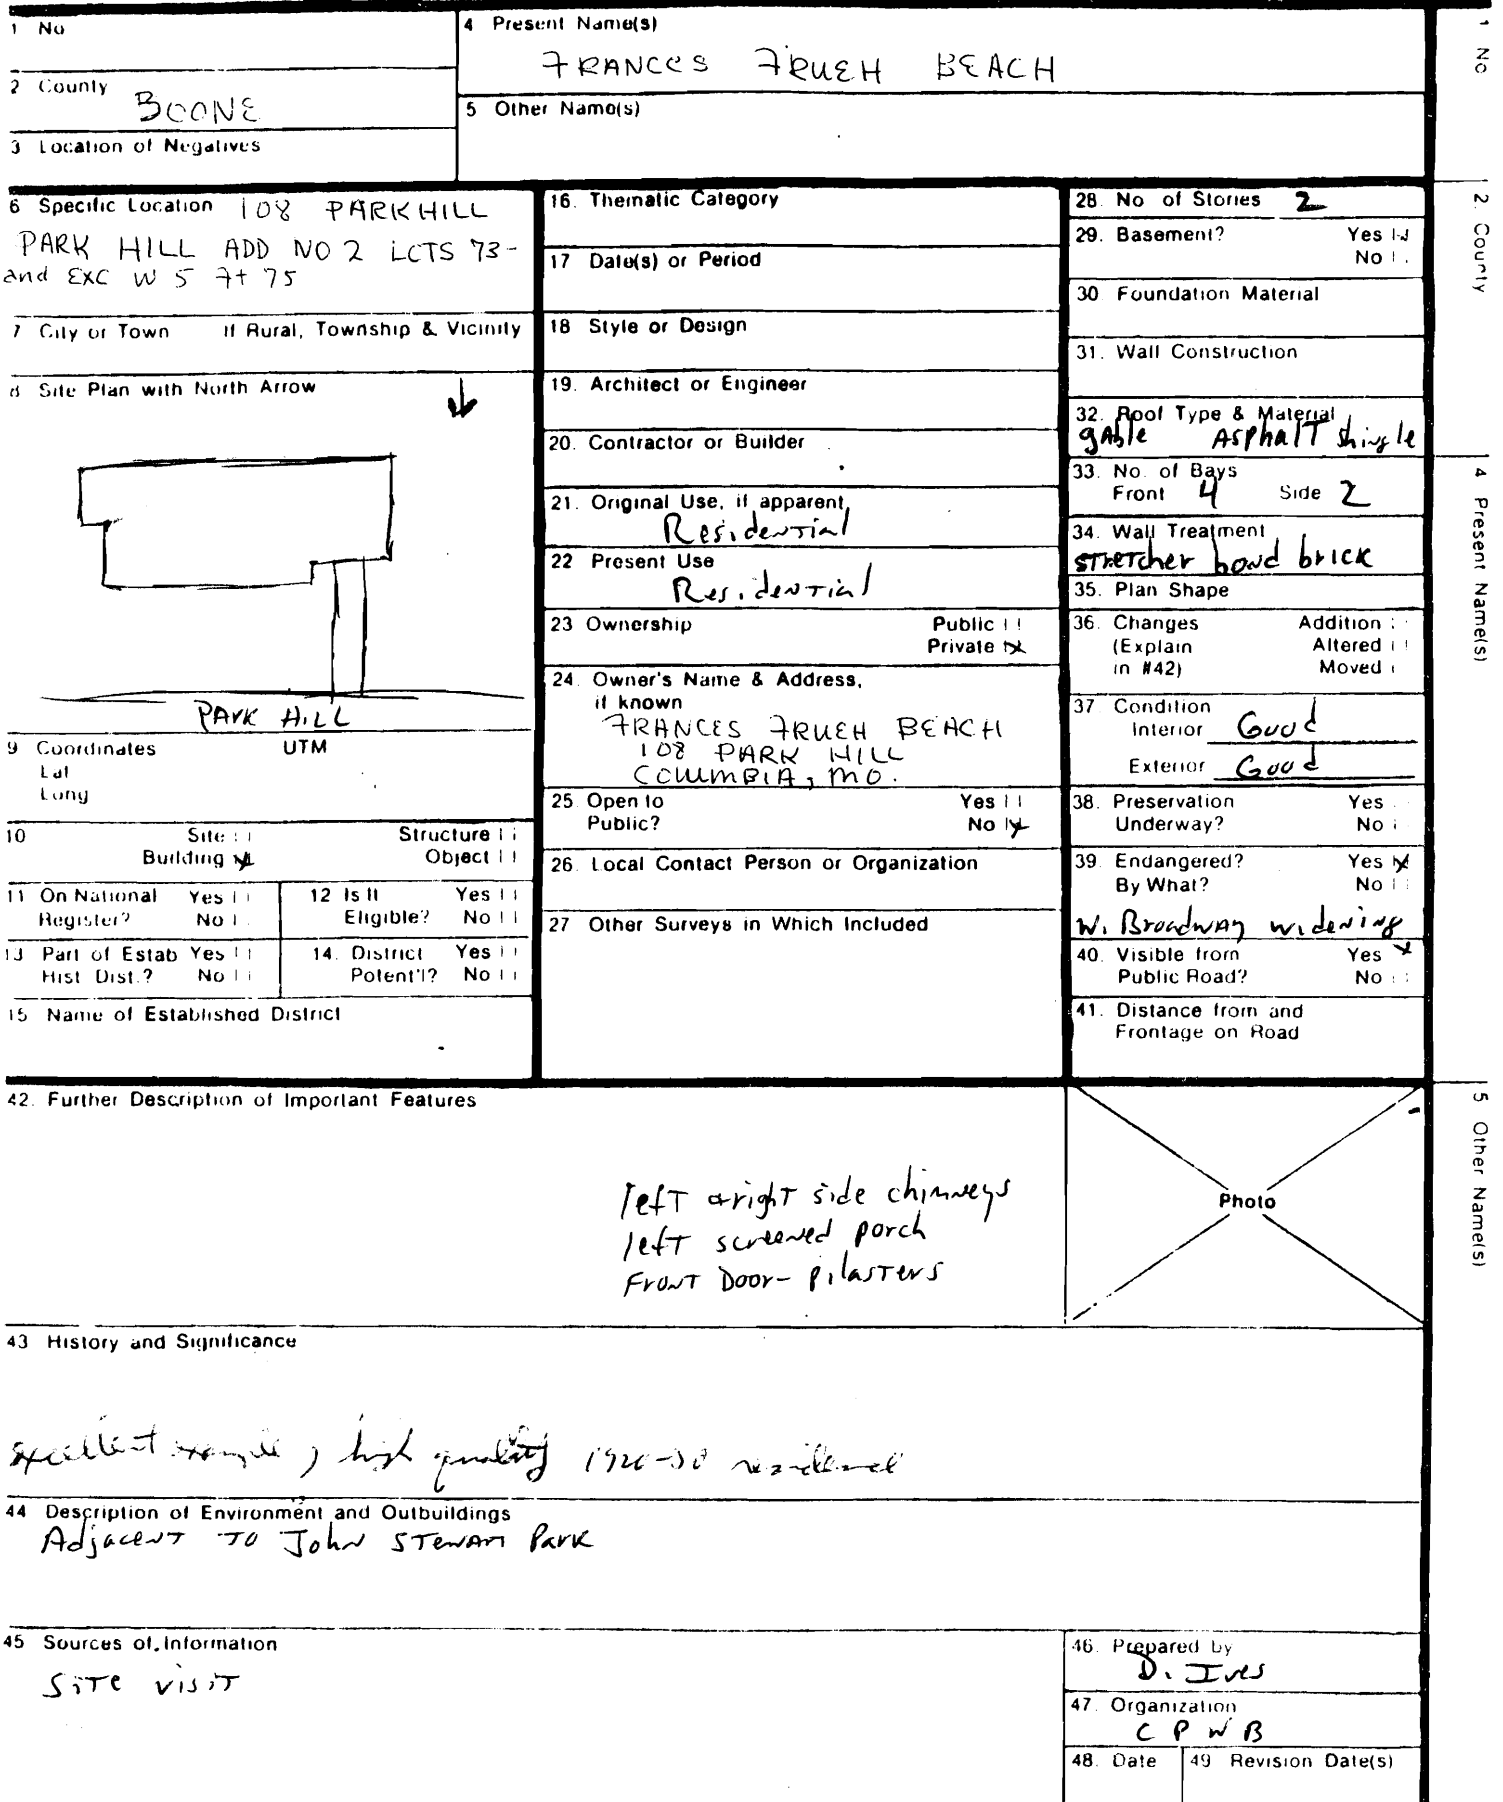 1 No
4 Present Name(s)
FRANCES FRUEH BEACH
2 County
BOONE
5 Other Name(s)
3 Location of Negatives
6 Specific Location 108 PARKHILL
PARK HILL ADD NO 2 LOTS 73-
and EXC W 5 Ft 75
7 City or Town If Rural, Township & Vicinity
8 Site Plan with North Arrow
PARK HILL
9 Coordinates UTM
Lat
Long
10 Site
Structure
Building
Object
11 On National Register? Yes No
12 Is It Eligible? Yes No
13 Part of Estab Hist Dist.? Yes No
14. District Potent'l? Yes No
15 Name of Established District
16. Thematic Category
17 Date(s) or Period
18 Style or Design
19. Architect or Engineer
20. Contractor or Builder
21. Original Use, if apparent
Residential
22 Present Use
Residential
23 Ownership Public
Private
24. Owner's Name & Address,
if known
FRANCES FRUEH BEACH
108 PARK HILL
COLUMBIA, MO.
25 Open to Yes
Public? No
26. Local Contact Person or Organization
27 Other Surveys in Which Included
28. No of Stories 2
29. Basement? Yes
No
30 Foundation Material
31. Wall Construction
32. Roof Type & Material
gable Asphalt shingle
33. No. of Bays
Front 4 Side 2
34. Wall Treatment
stretcher bond brick
35. Plan Shape
36. Changes Addition
(Explain Altered
in #42) Moved
37. Condition
Interior Good
Exterior Good
38. Preservation Yes
Underway? No
39. Endangered? Yes
By What? No
W. Broadway widening
40. Visible from Yes
Public Road? No
41. Distance from and
Frontage on Road
42. Further Description of Important Features
left & right side chimneys
left screened porch
Front Door- pilasters
Photo
43 History and Significance
excellent example, high quality 1920-30 residence
44 Description of Environment and Outbuildings
Adjacent to John Stewart Park
45 Sources of Information
Site visit
46. Prepared by
D. Ives
47. Organization
C P W B
48. Date
49 Revision Date(s)
1 No
2 County
4 Present Name(s)
5 Other Name(s)